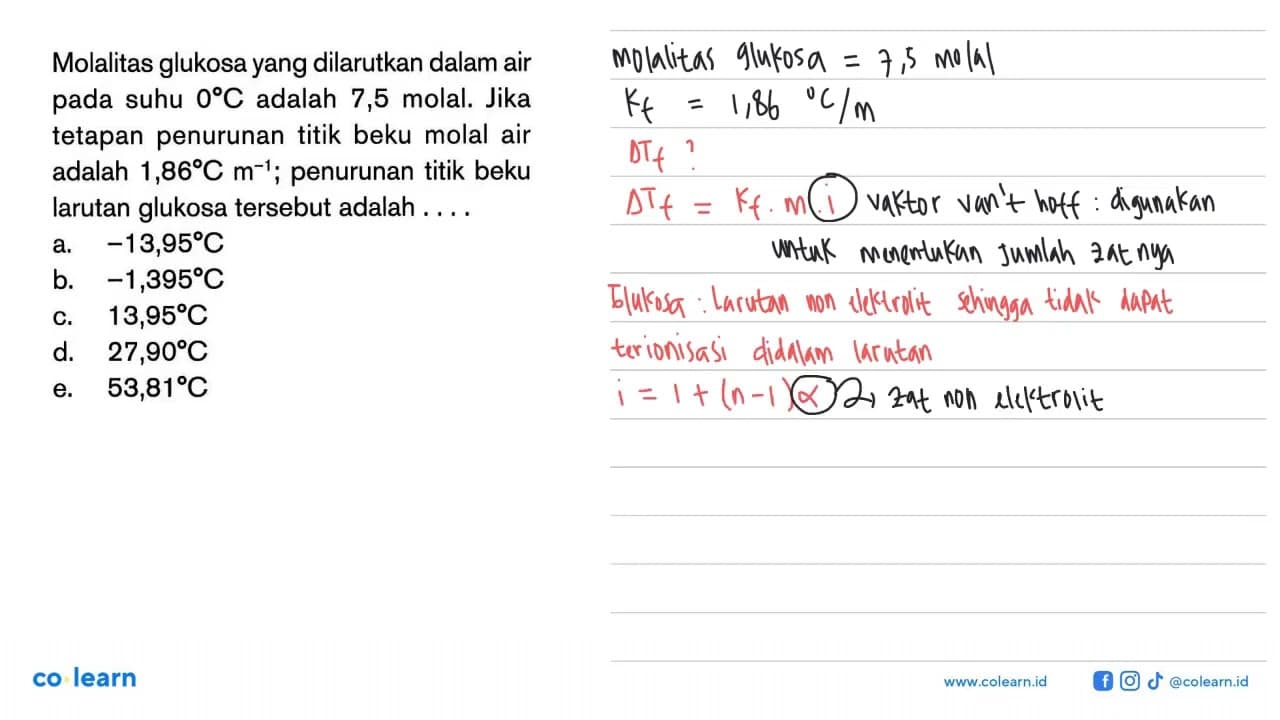 Molalitas glukosa yang dilarutkan dalam air
pada suhu 0°C adalah 7,5 molal. Jika
tetapan penurunan titik beku molal air
adalah 1,86°C m⁻¹; penurunan titik beku
larutan glukosa tersebut adalah . . . .
a. –13,95°C
b. –1,395°C
c. 13,95°C
d. 27,90°C
e. 53,81°C
molalitas glukosa = 7,5 molal
Kf = 1,86 °C/m
ΔTf ?
ΔTf = Kf . m . i vaktor van't hoff : digunakan
untuk menentukan jumlah zat nya
Glukosa : Larutan non elektrolit sehingga tidak dapat
terionisasi didalam larutan
i = 1 + (n-1) α → zat non elektrolit
co learn
www.colearn.id
@colearn.id